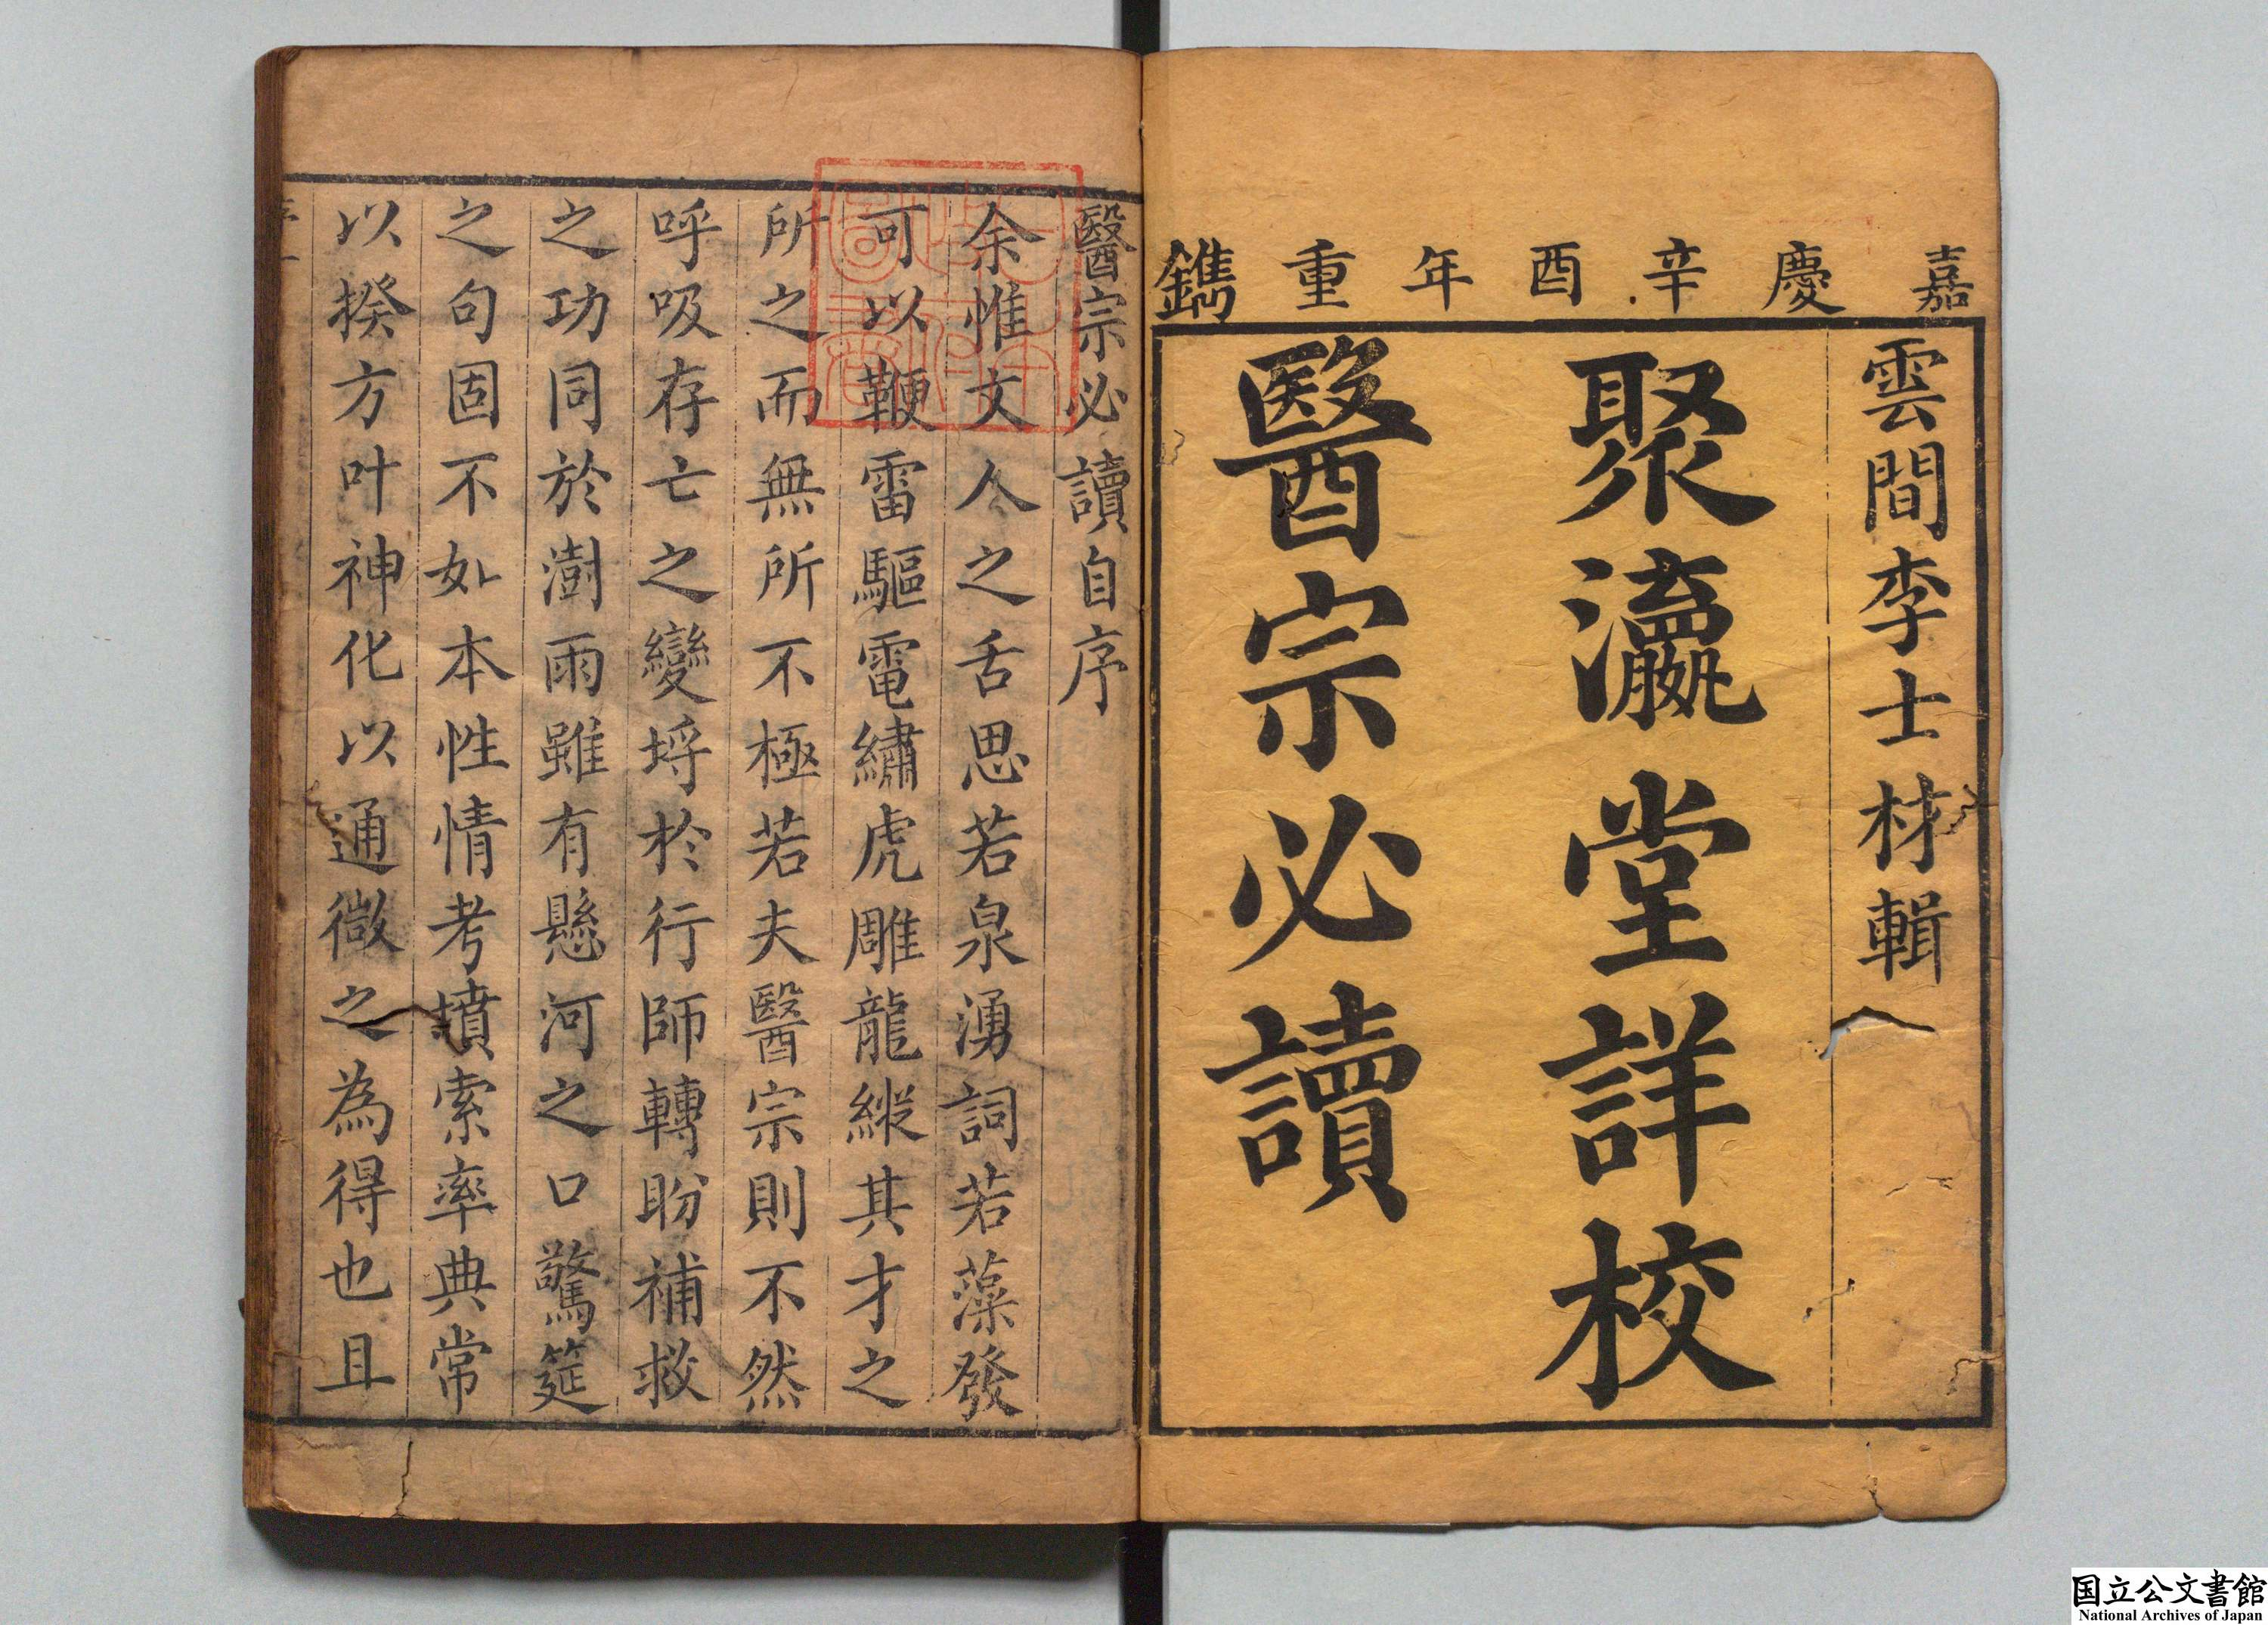 嘉慶辛酉年重鐫
雲間李士材輯
聚瀛堂詳校
醫宗必讀
醫宗必讀自序
余惟文人之舌思若泉湧詞若藻發
可以鞭雷驅電繡虎雕龍縱其才之
所之而無所不極若夫醫宗則不然
呼吸存亡之變埒於行師轉盼補救
之功同於澍雨雖有懸河之口驚筵
之句固不如本性情考墳索率典常
以揆方叶神化以通微之為得也且
国立公文書館
National Archives of Japan